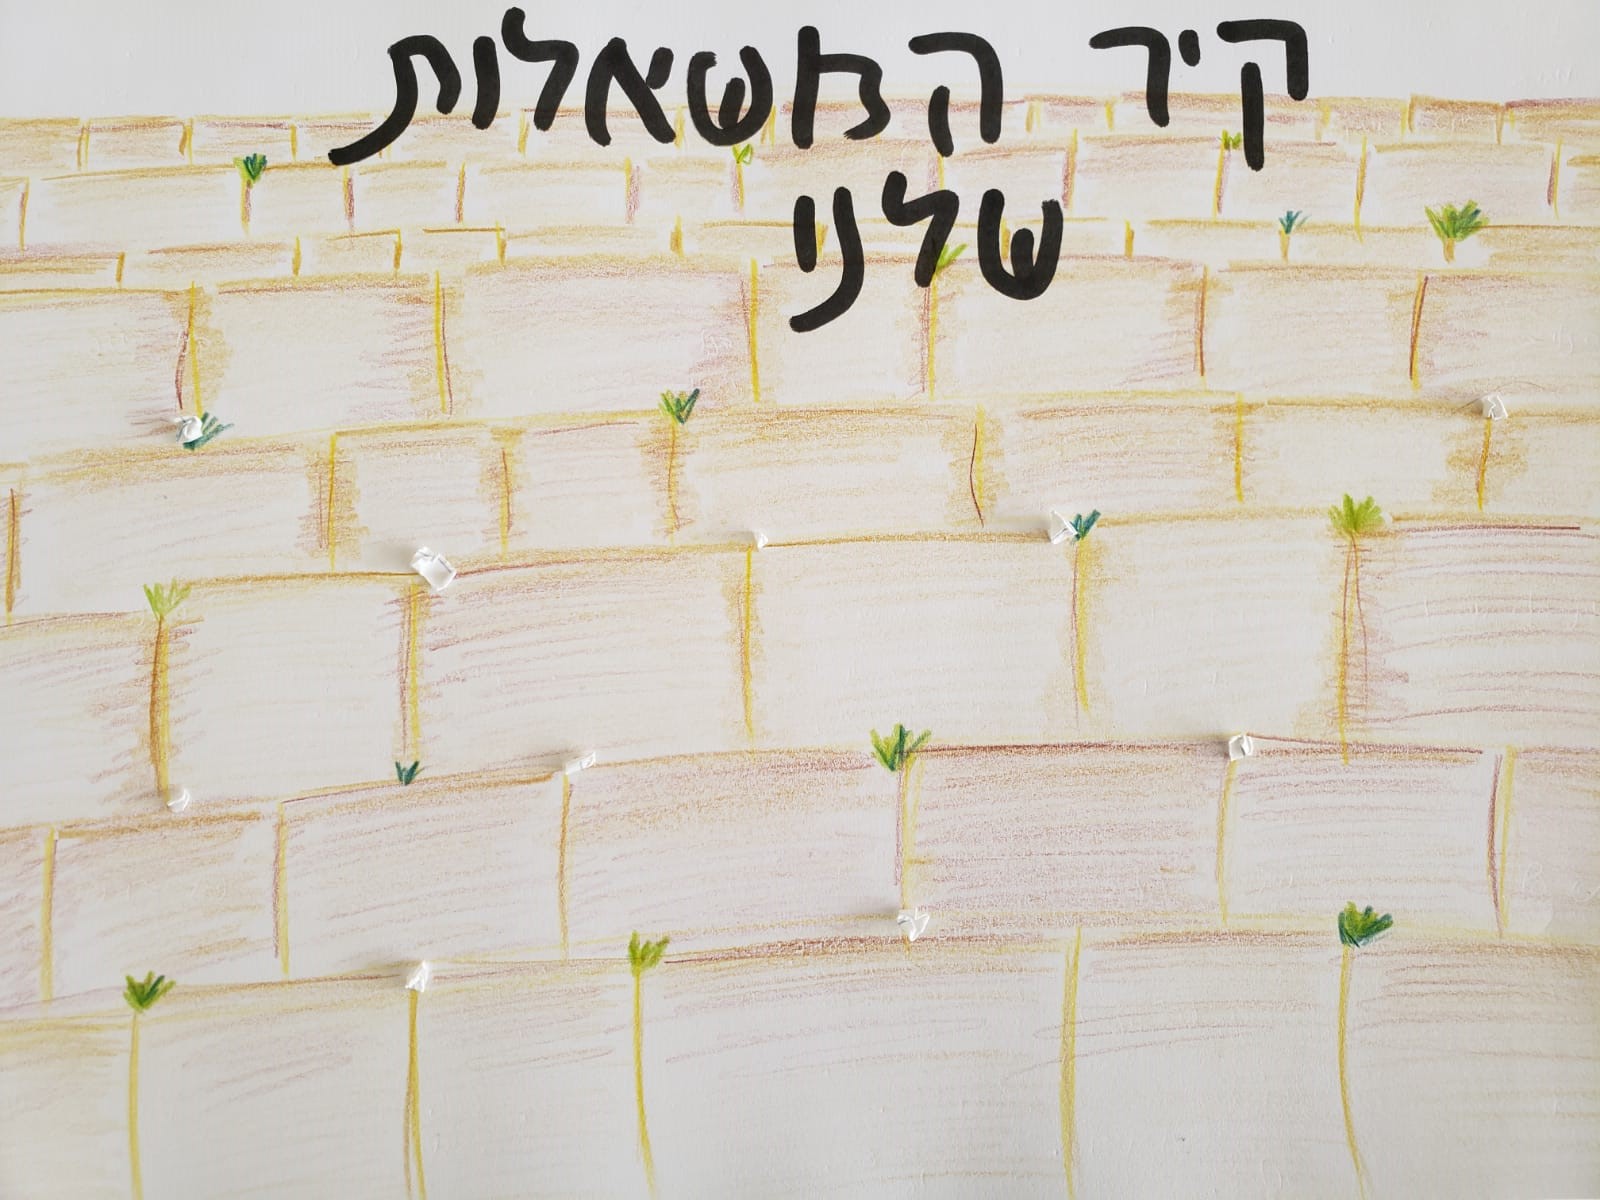 קיר המשאלות
שלנו